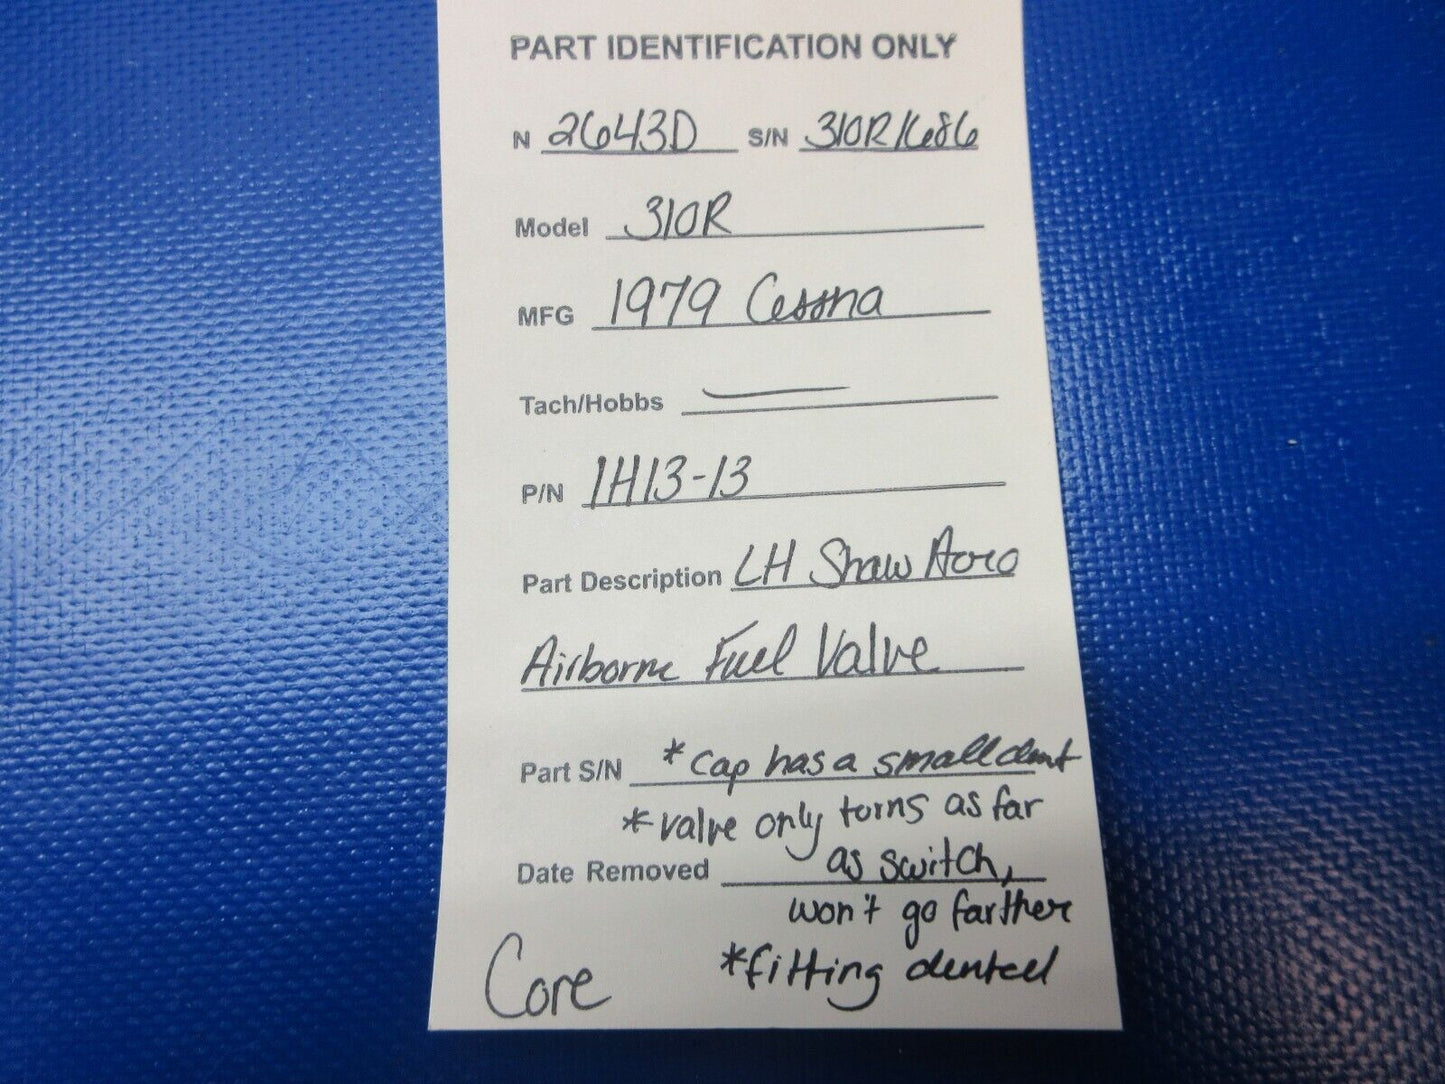 PART IDENTIFICATION ONLY
N 2643D S/N 310R1686
Model 310R
MFG 1979 Cessna
Tach/Hobbs —
P/N 1H13-13
Part Description LH Shaw Aero
Airborne Fuel Valve
Part S/N *cap has a small dent
*valve only turns as far
Date Removed as switch,
won't go farther
Core *fitting dented